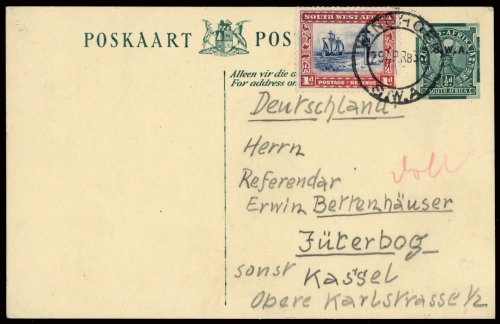 POSKAART POS
SOUTH WEST AFRICA
POSTAGE REVENUE
1d 1d
S.W.A.
SOUTH AFRICA
Alleen vir die a
For address on
Deutschland
Herrn
Referendar
Erwin Bettenhäuser
Jüterbog
sonst Kassel
Obere Karlstrasse 1/2